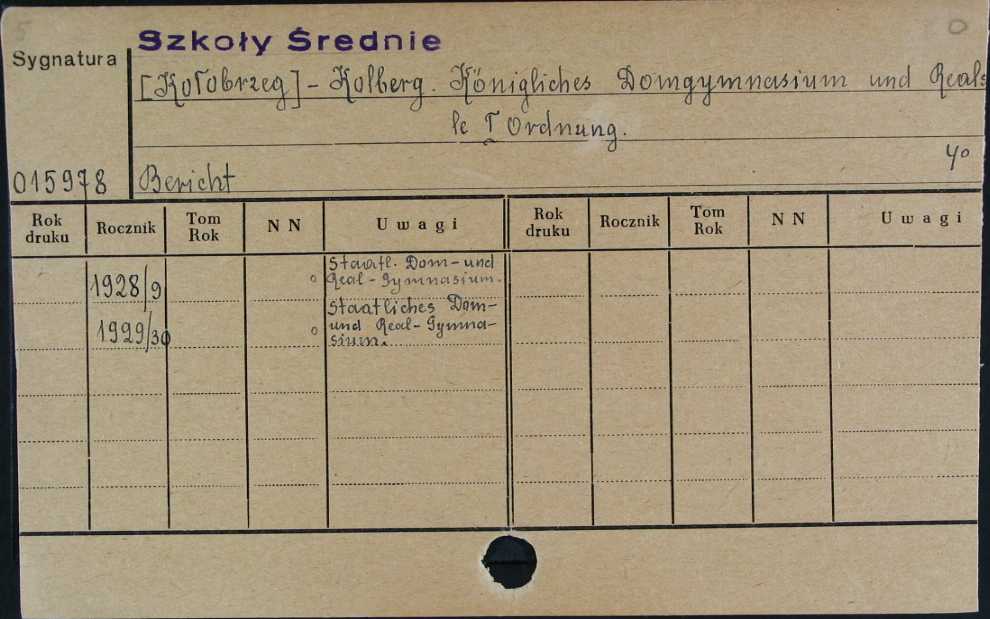 Szkoły Średnie
0
Sygnatura
[Kołobrzeg] - Kolberg. Königliches Domgymnasium und Reals
le I Ordnung.
4º
015978 Bericht
Rok druku Rocznik Tom Rok N N Uwagi Rok druku Rocznik Tom Rok N N Uwagi
1928/9 o Staatl. Dom- und
Real-Gymnasium.
1929/30 o Staatliches Dom-
und Real-Gymna-
sium.